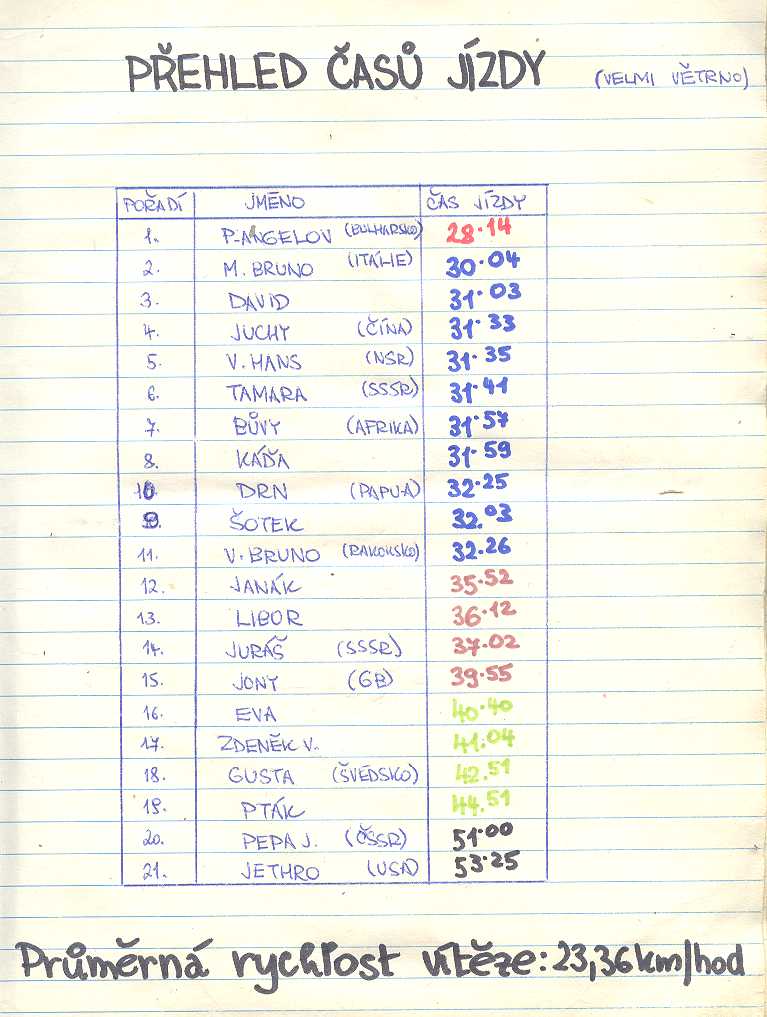 PŘEHLED ČASŮ JÍZDY (VELMI VĚTRNO)
POŘADÍ JMÉNO ČAS JÍZDY
1. P. ANGELOV (BULHARSKO) 28.14
2. M. BRUNO (ITÁLIE) 30.04
3. DAVID 31.03
4. JUCHY (ČÍNA) 31.33
5. V. HANS (NSR) 31.35
6. TAMARA (SSSR) 31.41
7. BŮVY (AFRIKA) 31.57
8. KÁĎA 31.59
10 DRN (PAPUA) 32.25
9. ŠOTEK 32.03
11. V. BRUNO (RAKOUSKO) 32.26
12. JANÁK 35.52
13. LIBOR 36.12
14. JURÁŠ (SSSR) 37.02
15. JONY (GB) 39.55
16. EVA 40.40
17. ZDENĚK V. 41.04
18. GUSTA (ŠVÉDSKO) 42.51
19. PTÁK 44.51
20. PEPA J. (ČSSR) 51.00
21. JETHRO (USA) 53.25
Průměrná rychlost vítěze: 23,36 km/hod